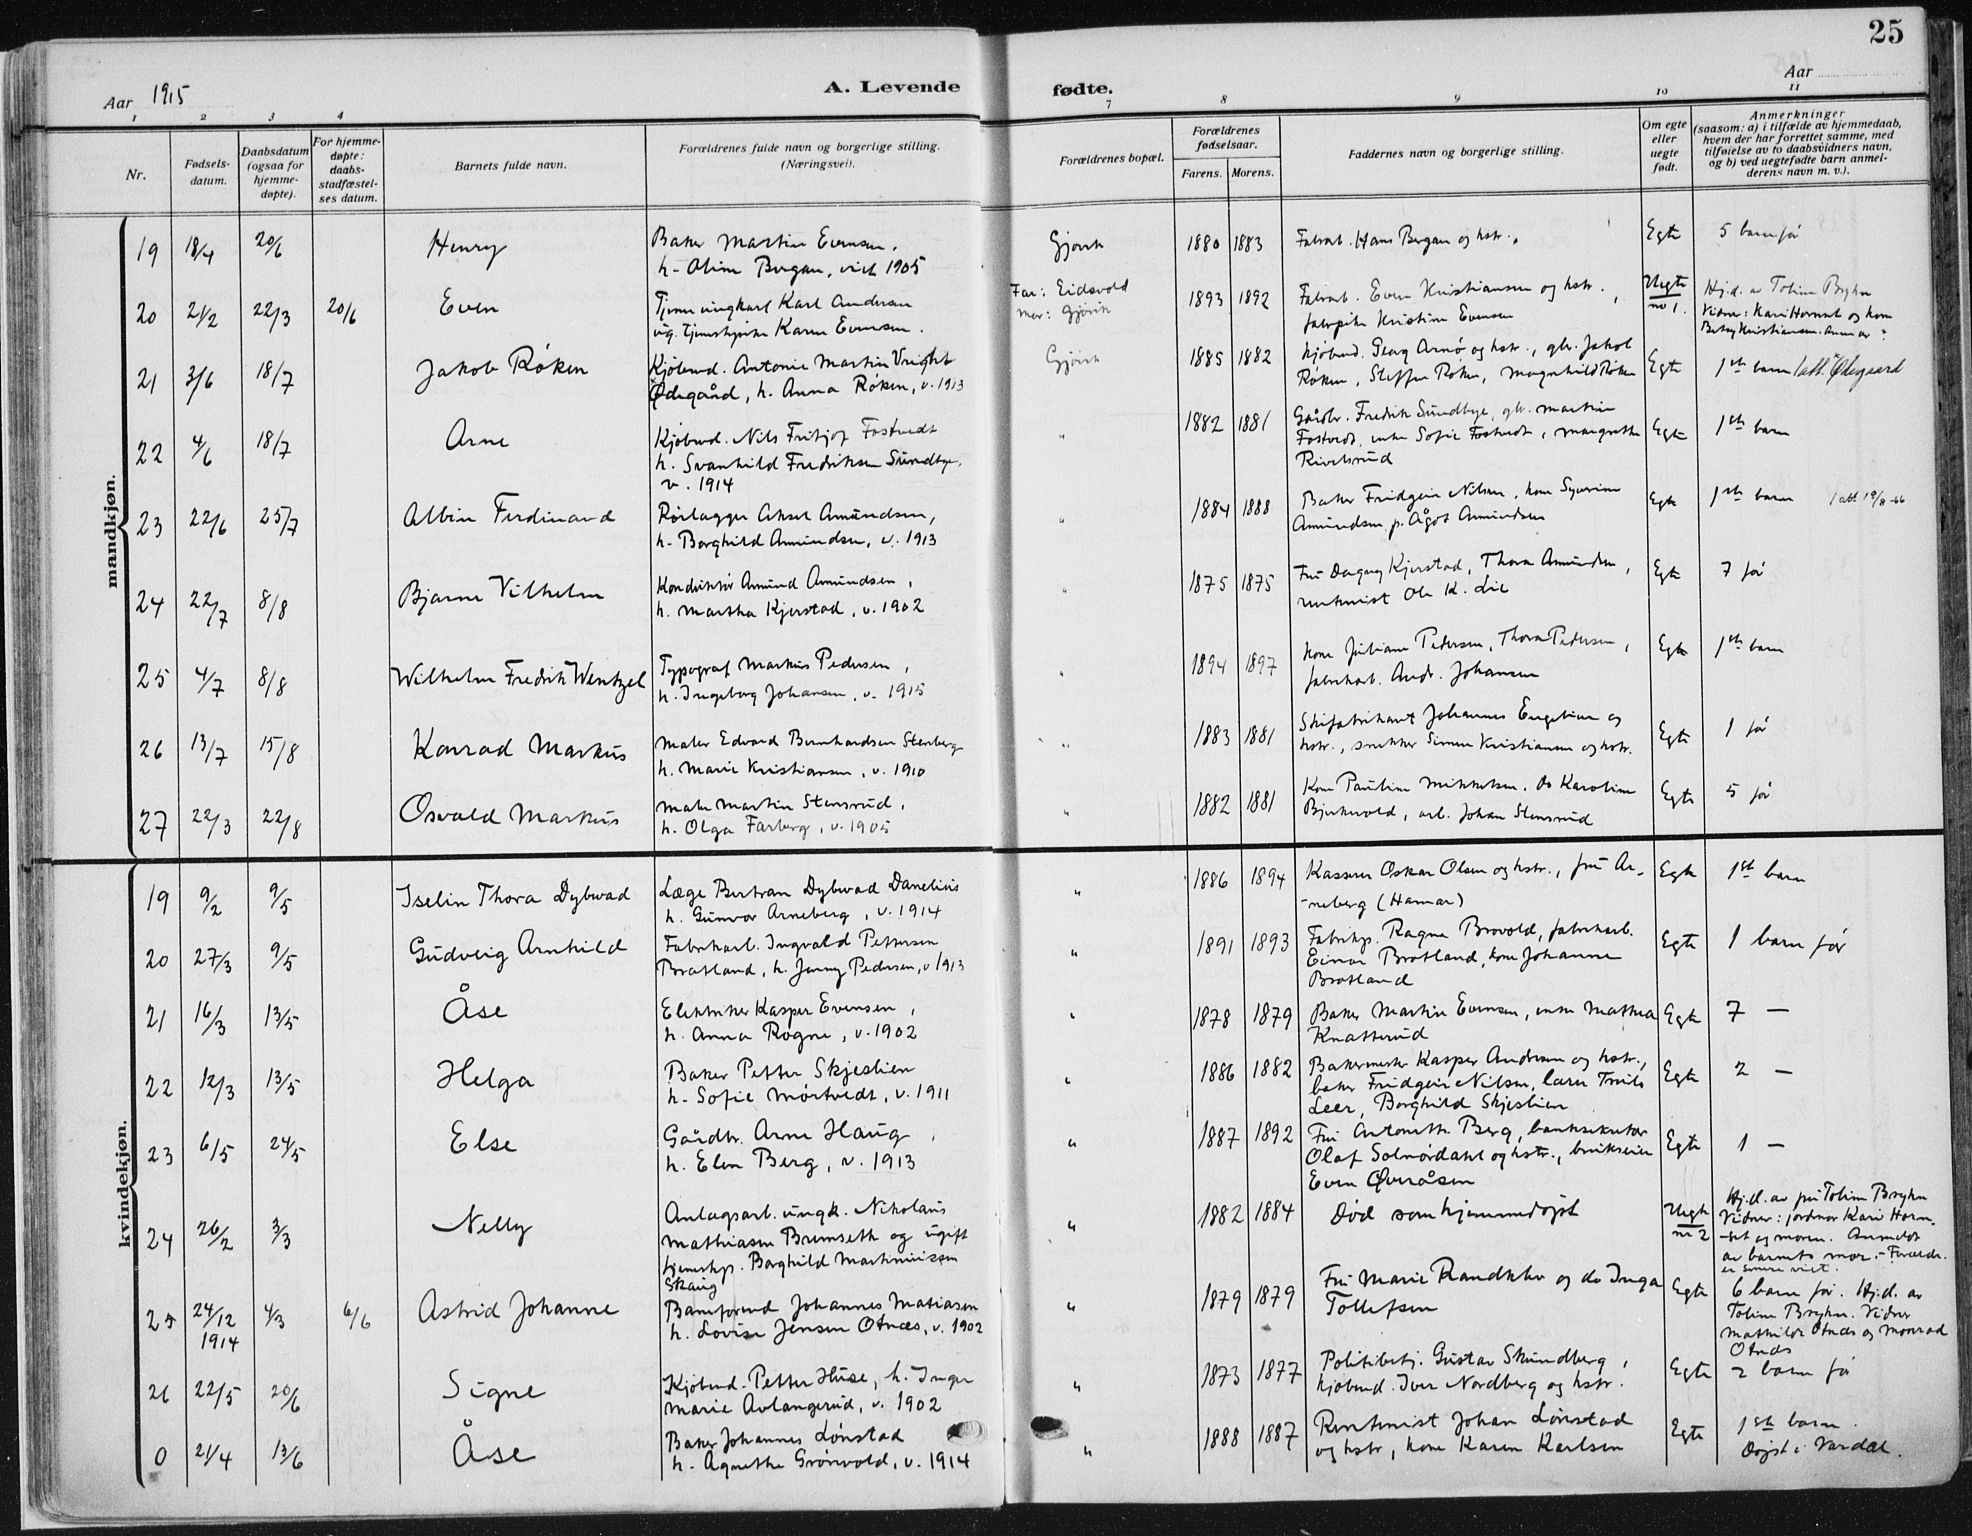 25
Aar 1915
A. Levende fødte.
Aar
1 2 3 4 7 8 9 10 11
Nr.
Fødsels-
datum.
Daabsdatum
(ogsaa for
hjemme-
døpte).
For hjemme-
døpte:
daabs-
stadfæstel-
ses datum.
Barnets fulde navn.
Forældrenes fulde navn og borgerlige stilling.
(Næringsvei).
Forældrenes bopæl.
Forældrenes
fødselsaar.
Farens. Morens.
Faddernes navn og borgerlige stilling.
Om egte
eller
uegte
født.
Anmerkninger
(saasom: a) i tilfælde av hjemmedaab,
hvem der har forrettet samme, med
tilføielse av to daabsvidners navn,
og b) ved uegtefødte barn anmel-
derens navn m. v.).
mandkjøn.
19 18/4 20/6 Henry Baker Martin Evensen, Gjøvik 1880 1883 Fabrarb. Hans Bergan og hstr., Egte 5 barn før
h. Oline Bergan, viet 1905
20 21/2 22/3 20/6 Even Tjener ungkarl Karl Andersen Far: Eidsvold 1893 1892 Fabrarb. Even Kristiansen og hstr., Uegte Hj.d. av Toline Bryhn
ug. tjenestepike Karen Evensen. Mor: Gjøvik fabrpike Kristine Evensen no 1. Vidner: Kari Hornset og kone
Betsy Kristiansen.
21 3/6 18/7 Jakob Røken Kjøbmd. Antonie Martin Gjøvik 1885 1882 Kjøbmd. Georg Arnø og hstr., gbr. Jakob Egte 1ste barn Ødegaard
Ødegård, h. Anna Røken, v. 1913 Røken, Steffen Røken, Magnhild Røken
22 4/6 18/7 Arne Kjøbmd. Nils Fritjof Fostvedt " 1882 1881 Gårdbr. Fredrik Sundbye, gbr. Martin Egte 1ste barn
h. Svanhild Fredriksen Sundbye, Fostvedt, enke Sofie Fostvedt, Margrethe
v. 1914 Rivelsrud
23 22/6 25/7 Albin Ferdinand Rørlægger Aksel Amundsen, " 1884 1888 Baker Fridgeir Nilsen, kone Syverine Egte 1ste barn 1 att 19/8-66
h. Borghild Amundsen, v. 1913 Amundsen, p. Ågot Amundsen
24 22/7 8/8 Bjarne Vilhelm Konduktør Amund Amundsen, " 1875 1875 Fru Dagny Kjerstad, Thora Amundsen, Egte 7 før
h. Martha Kjerstad, v. 1902 rentenist Ole K. Lie
25 4/7 8/8 Wilhelm Fredrik Wentzel Typograf Markus Pedersen, " 1894 1897 Kone Juliane Pedersen, Thora Pedersen, Egte 1ste barn
h. Ingeborg Johansen, v. 1915 fabrikarb. Andr. Johansen
26 13/7 15/8 Konrad Markus Maler Edvard Bernhardsen Stenberg " 1883 1881 Skifabrikant Johannes Engelien og Egte 1 før
h. Marie Kristiansen, v. 1910 hstr., snekker Simen Kristiansen og hstr.
27 22/3 22/8 Osvald Markus Maler Martin Stensrud, " 1882 1881 Kone Pauline Mikkelsen, do Karoline Egte 5 før
h. Olga Farberg, v. 1905 Bjerkevold, arb. Johan Stensrud
kvindekjøn.
19 9/2 9/5 Iselin Thora Dybwad Læge Bertran Dybwad Danelius " 1886 1894 Kasserer Oskar Olsen og hstr., fru Ar- Egte 1ste barn
h. Gunvor Arneberg, v. 1914 -neberg (Hamar)
20 27/3 9/5 Gudveig Arnhild Fabrikarb. Ingvald Pettersen " 1891 1893 Fabrikp. Ragna Brovold, fabrikarb. Egte 1 barn før
Bratland, h. Jenny Pedersen, v 1913 Einar Bratland, kone Johanne
Bratland
21 16/3 13/5 Åse Elektriker Kasper Evensen, " 1878 1879 Baker Martin Evensen, enke Mathea Egte 7 —
h. Anna Rogne, v. 1902 Knatterud
22 12/3 13/5 Helga Baker Petter Skjeslien " 1886 1882 Bakermester Kasper Andersen og hstr., Egte 2 —
h. Sofie Mørtvedt, v. 1911 baker Fridgeir Nilsen, Truls
Leer, Borghild Skjeslien
23 6/5 24/5 Else Gårdbr. Arne Haug, " 1887 1892 Fru Antonette Berg, banksekretær Egte 1 —
h. Elen Berg, v. 1913 Olaf Solnørdahl og hstr., brukseier
Even Øveråsen
24 26/2 3/3 Nelly Anlagsarb. ungk. Nikolaus " 1882 1884 Død som hjemmedøpt Uegte Hj.d. av fru Toline Bryhn
Mathiasen Brumseth og ugift nr 2 Vidner: jordmor Kari Horn-
tjenestep. Borghild Martiniussen -set og moren. Anmeldt
Skaug av barnets mor. - Forældr.
er senere viet.
25 24/12 1914 4/3 6/6 Astrid Johanne Baneformd Johannes Matiasen " 1879 1879 Fru Marie Randklev og do Inga Egte 6 barn før. Hj.d. av
h. Lovise Jensen Otnæs, v. 1902 Tollefsen Toline Bryhn. Vidner
Mathilde Otnæs og Monrad
Otnæs
26 22/5 20/6 Signe Kjøbmd. Petter Huse, h. Inger " 1873 1877 Politibetj. Gustav Skundberg, Egte 2 barn før
Marie Avlangerud, v. 1902 kjøbmd. Iver Nordberg og hstr.
0 21/4 13/6 Åse Baker Johannes Lønstad " 1888 1887 Rentenist Johan Lønstad Egte 1ste barn.
h. Agnethe Grønvold, v. 1914 og hstr, kone Karen Karlsen Døpt i Vardal.